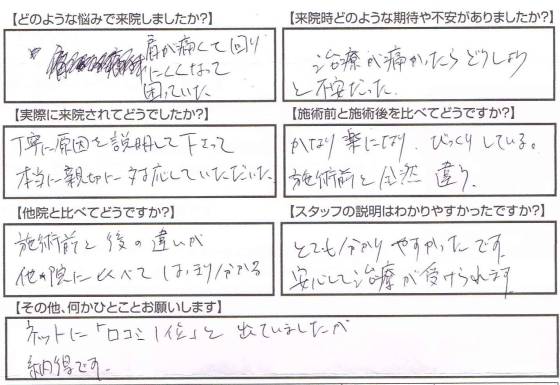 【どのような悩みで来院しましたか?】
肩が痛くて回り
にくくなって
困っていた
【来院時どのような期待や不安がありましたか?】
治療が痛かったらどうしよう
と不安だった。
【実際に来院されてどうでしたか?】
丁寧に原因を説明して下さって
本当に親切に対応していただいた
【施術前と施術後を比べてどうですか?】
かなり楽になり、びっくりしている。
施術前と全然違う。
【他院と比べてどうですか?】
施術前と後の違いが
他の院に比べてはっきり分かる
【スタッフの説明はわかりやすかったですか?】
とても分かりやすかったです。
安心して治療が受けられます
【その他、何かひとことお願いします】
ネットに「口コミ1位」と出ていましたが
納得です。